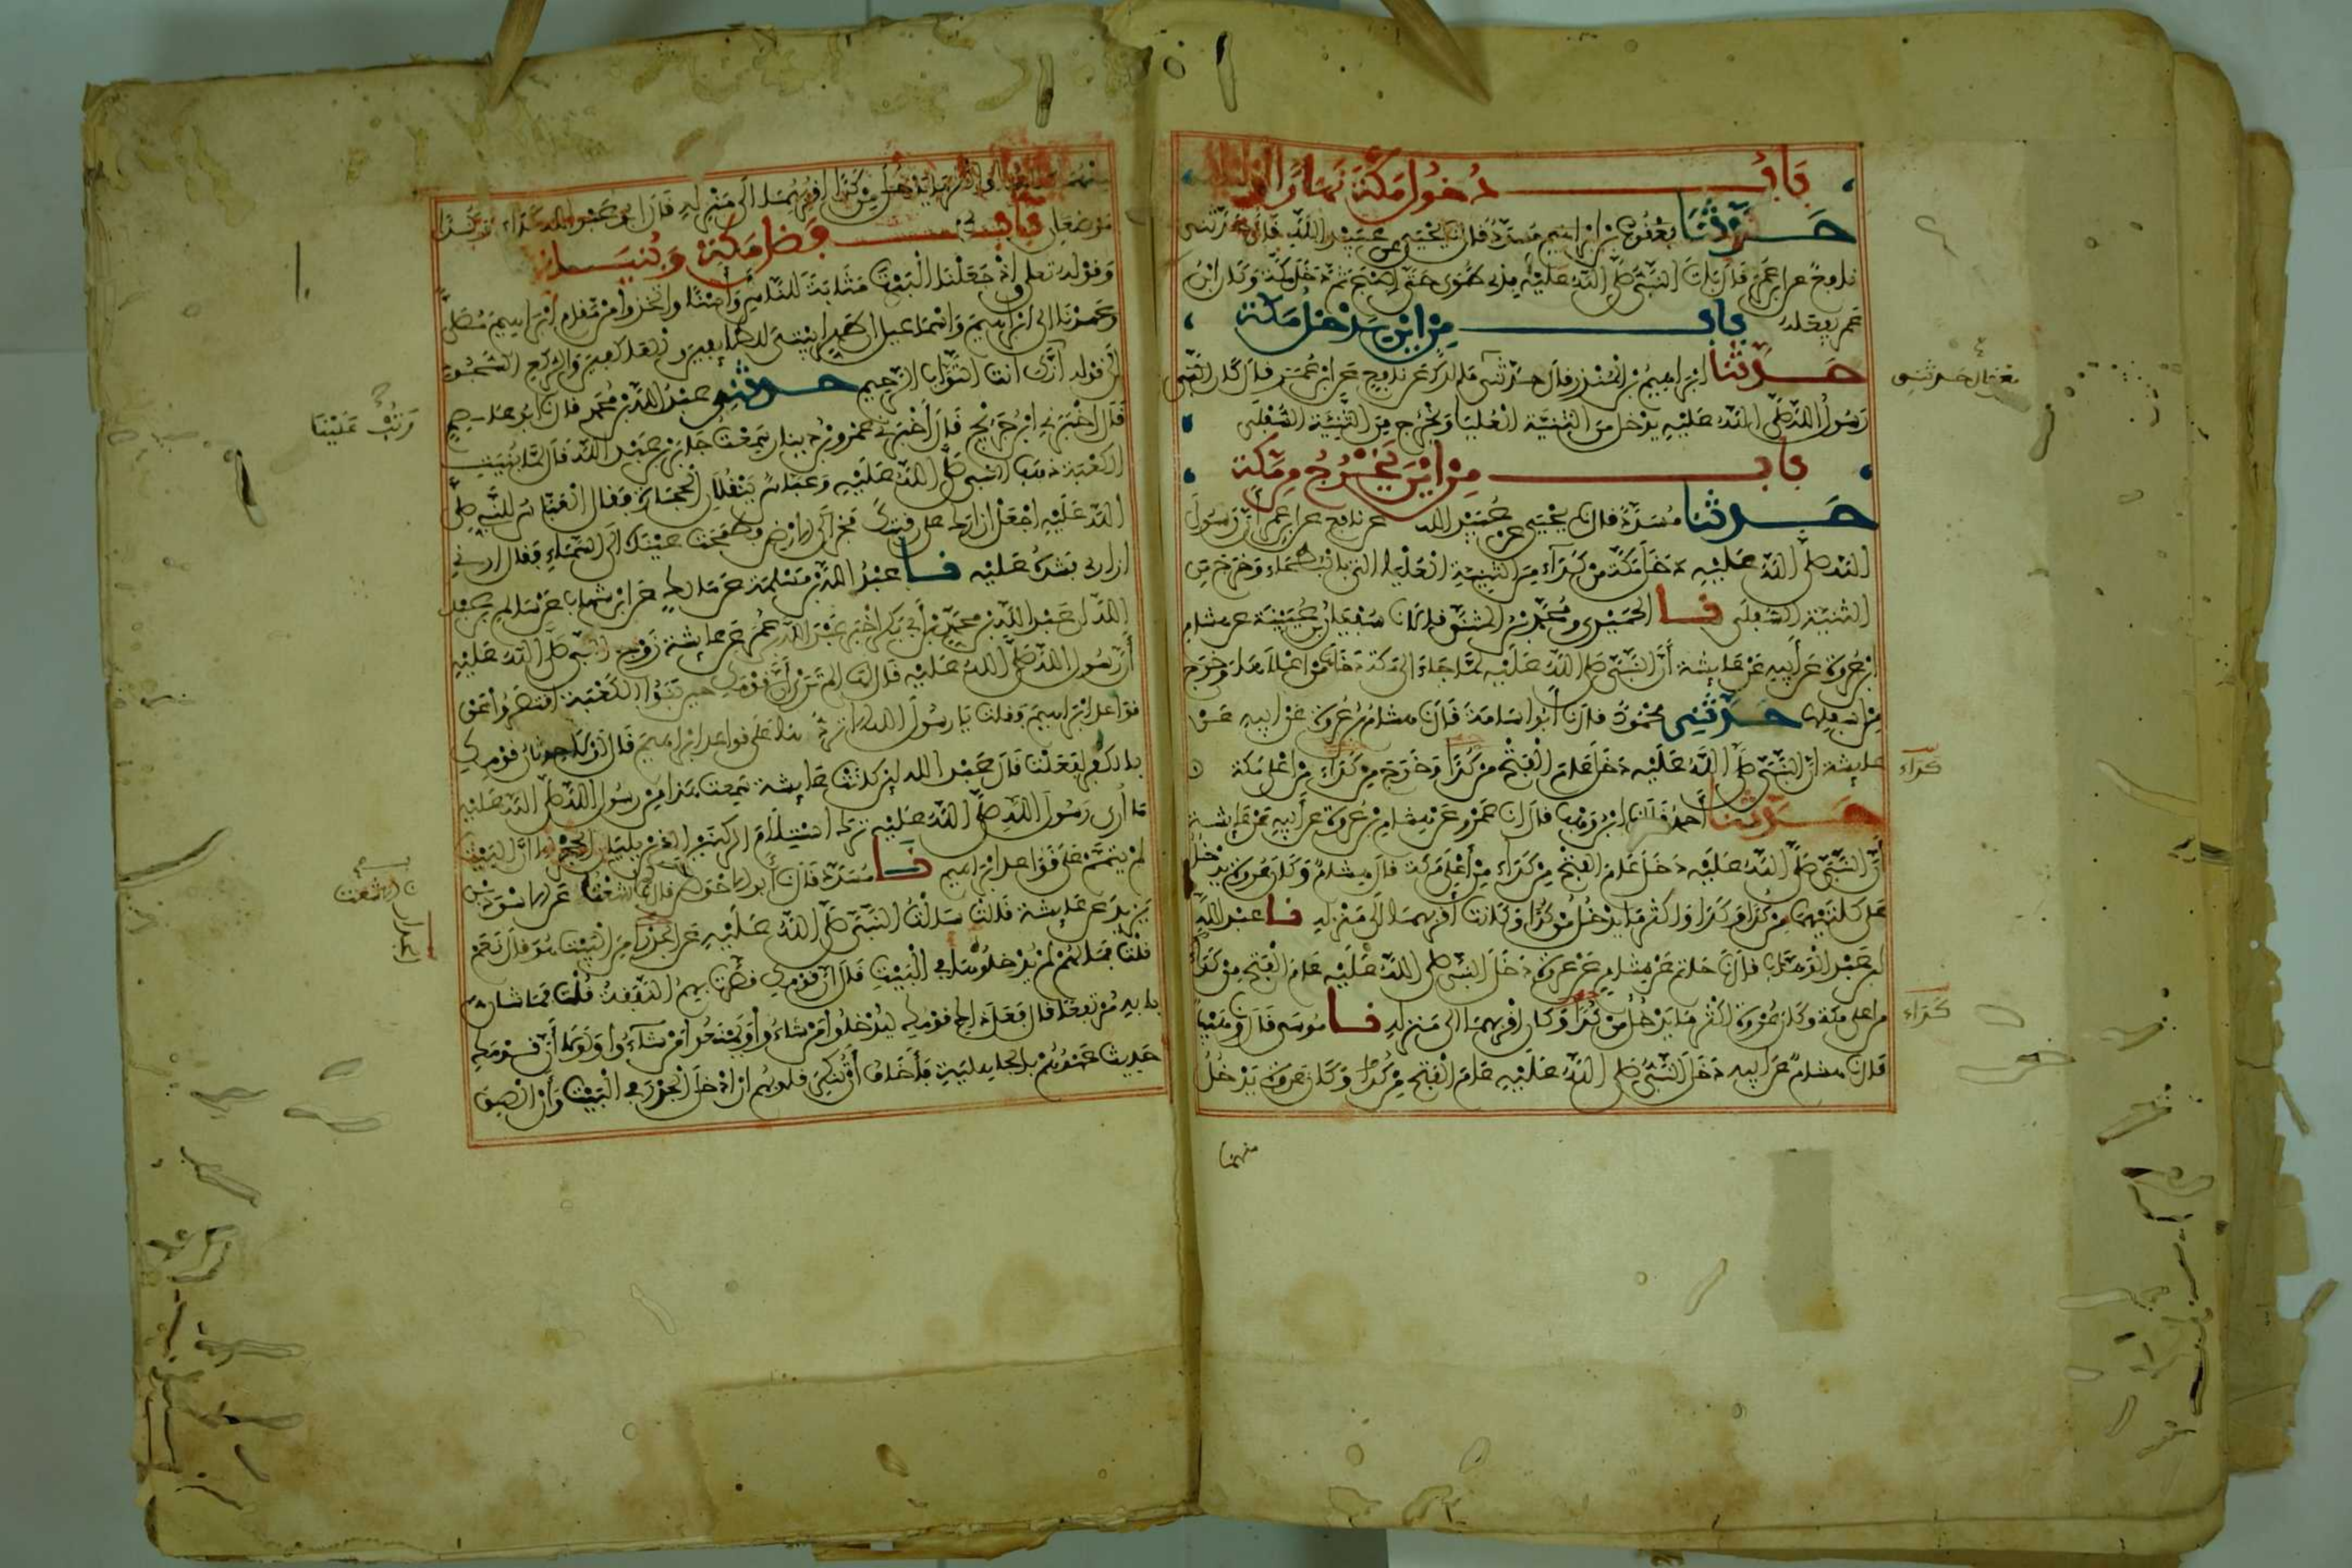 باب دخول مكة نهارا
حدثنا مسدد قال نا يحيى عن عبيد الله قال حدثني
نافع عن ابن عمر قال بات النبي صلى الله عليه بذي طوى حتى اصبح ثم دخل مكة وكان ابن
عمر يفعله باب من اين يدخل مكة
حدثنا ابراهيم بن المنذر قال حدثني عن نافع عن ابن عمر قال كان النبي
رسول الله صلى الله عليه يدخل من الثنية العليا ويخرج من الثنية السفلى
باب من اين يخرج من مكة
حدثنا مسدد قال نا يحيى عن عبيد الله عن نافع عن ابن عمر ان رسول
الله صلى الله عليه دخل مكة من كداء من الثنية العليا التي بالبطحاء وخرج من
الثنية السفلى نا الحميدي ومحمد بن المثنى قالا نا سفيان بن عيينة عن هشام
ابن عروة عن ابيه عن عايشة أن النبي صلى الله عليه لما جاء الى مكة دخل من اعلاها وخرج
من اسفلها حدثني محمود قال نا ابو اسامة قال نا هشام بن عروة عن ابيه عن
عايشة ان النبي صلى الله عليه دخل عام الفتح من كدا وخرج من كداء من اعلى مكة
حدثنا احمد قال نا ابن وهب قال انا عمرو عن هشام بن عروة عن أبيه عن عايشة
أن النبي صلى الله عليه دخل عام الفتح من كداء من أعلى مكة قال هشام وكان عروة يدخل
على كلتيهما من كدا وكدا واكثر ما يدخل من كدا وكانت أقربهما الى منزله نا عبد الله
ابن عبد الوهاب قال نا حاتم عن هشام عن عروة دخل النبي صلى الله عليه عام الفتح من كدا
من اعلى مكة وكان عروة اكثر ما يدخل من كدا وكان اقربهما الى منزله نا موسى قال نا وهيب
قال نا هشام عن ابيه دخل النبي صلى الله عليه عام الفتح من كدا وكان عروة يدخل
منهما
حدثني
كداء
كداء
واكثر ما يدخل من كدا اقربهما الى منزله قال ابو عبد الله كداء وكدا
موضعان باب فضل مكة وبنيانها
وقوله تعلى واذ جعلنا البيت مثابة للناس وامنا واتخذوا من مقام ابراهيم مصلى
وعهدنا الى ابراهيم واسماعيل ان طهرا بيتي للطايفين والعاكفين والركع السجود
الى قوله انك انت التواب الرحيم حدثني عبد الله بن محمد قال نا ابو عاصم
قال أخبرني ابن جريج قال أخبرني عمرو بن دينار سمعت جابر بن عبد الله قال لما بنيت
الكعبة ذهب النبي صلى الله عليه وعباس ينقلان الحجارة فقال العباس للنبي صلى
الله عليه اجعل ازارك على رقبتك فخر الى الارض وطمحت عينه الى السماء فقال ارني
ازاري فشده عليه نا عبد الله بن مسلمة عن مالك عن ابن شهاب عن سالم بن عبد
الله ان عبد الله بن محمد بن أبي بكر اخبر عبد الله بن عمر عن عايشة زوج النبي صلى الله عليه
أن رسول الله صلى الله عليه قال لها الم تري أن قومك حين بنوا الكعبة اقتصروا عن
قواعد ابراهيم فقلت يا رسول الله الا تردها على قواعد ابراهيم قال لولا حدثان قومك
بالكفر لفعلت قال عبد الله لئن كانت عايشة سمعت هذا من رسول الله صلى الله عليه
ما أرى رسول الله صلى الله عليه ترك استلام الركنين الذين يليان الحجر الا ان البيت
لم يتمم على قواعد ابراهيم نا مسدد قال نا أبو الاحوص قال نا اشعث عن الاسود بن
يزيد عن عايشة قالت سالت النبي صلى الله عليه عن الجدر امن البيت هو قال نعم
قلت فما لهم لم يدخلوه في البيت قال ان قومك قصرت بهم النفقة قلت فما شان
بابه مرتفعا قال فعل ذلك قومك ليدخلوا من شاءوا ويمنعوا من شاءوا ولولا أن قومك
حديث عهدهم بالجاهلية فأخاف أن تنكر قلوبهم ان ادخل الجدر في البيت وأن الصق
وتب علينا
نا اشعث
الجدار